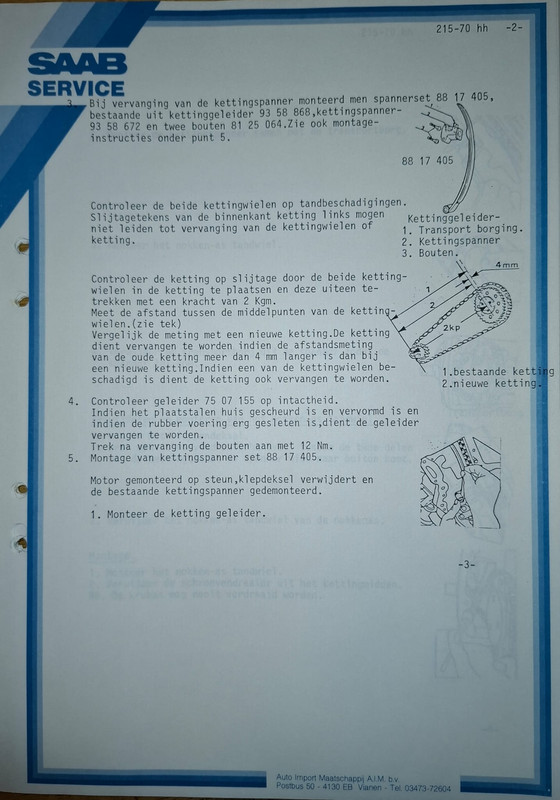 215-70 hh -2-
SAAB
SERVICE
3. Bij vervanging van de kettingspanner monteerd men spannerset 88 17 405,
bestaande uit kettinggeleider 93 58 868,kettingspanner-
93 58 672 en twee bouten 81 25 064.Zie ook montage-
instructies onder punt 5.
88 17 405
Controleer de beide kettingwielen op tandbeschadigingen.
Slijtagetekens van de binnenkant ketting links mogen
niet leiden tot vervanging van de kettingwielen of
ketting.
Kettinggeleider-
1. Transport borging.
2. Kettingspanner
3. Bouten.
Controleer de ketting op slijtage door de beide ketting-
wielen in de ketting te plaatsen en deze uiteen te-
trekken met een kracht van 2 Kgm.
Meet de afstand tussen de middelpunten van de ketting-
wielen.(zie tek)
Vergelijk de meting met een nieuwe ketting.De ketting
dient vervangen te worden indien de afstandsmeting
van de oude ketting meer dan 4 mm langer is dan bij
een nieuwe ketting.Indien een van de kettingwielen be-
schadigd is dient de ketting ook vervangen te worden.
4mm
1
2
2kp
1.bestaande ketting
2.nieuwe ketting.
4. Controleer geleider 75 07 155 op intactheid.
Indien het plaatstalen huis gescheurd is en vervormd is en
indien de rubber voering erg gesleten is,dient de geleider
vervangen te worden.
Trek na vervanging de bouten aan met 12 Nm.
5. Montage van kettingspanner set 88 17 405.
Motor gemonteerd op steun,klepdeksel verwijdert en
de bestaande kettingspanner gedemonteerd.
1. Monteer de ketting geleider.
-3-
Auto Import Maatschappij A.I.M. b.v.
Postbus 50 - 4130 EB Vianen - Tel. 03473-72604